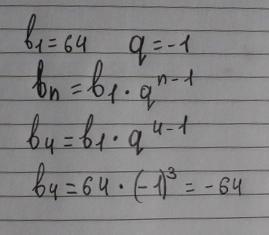 b1=64 q=-1
bn=b1·q^n-1
b4=b1·q^4-1
b4=64·(-1)^3=-64